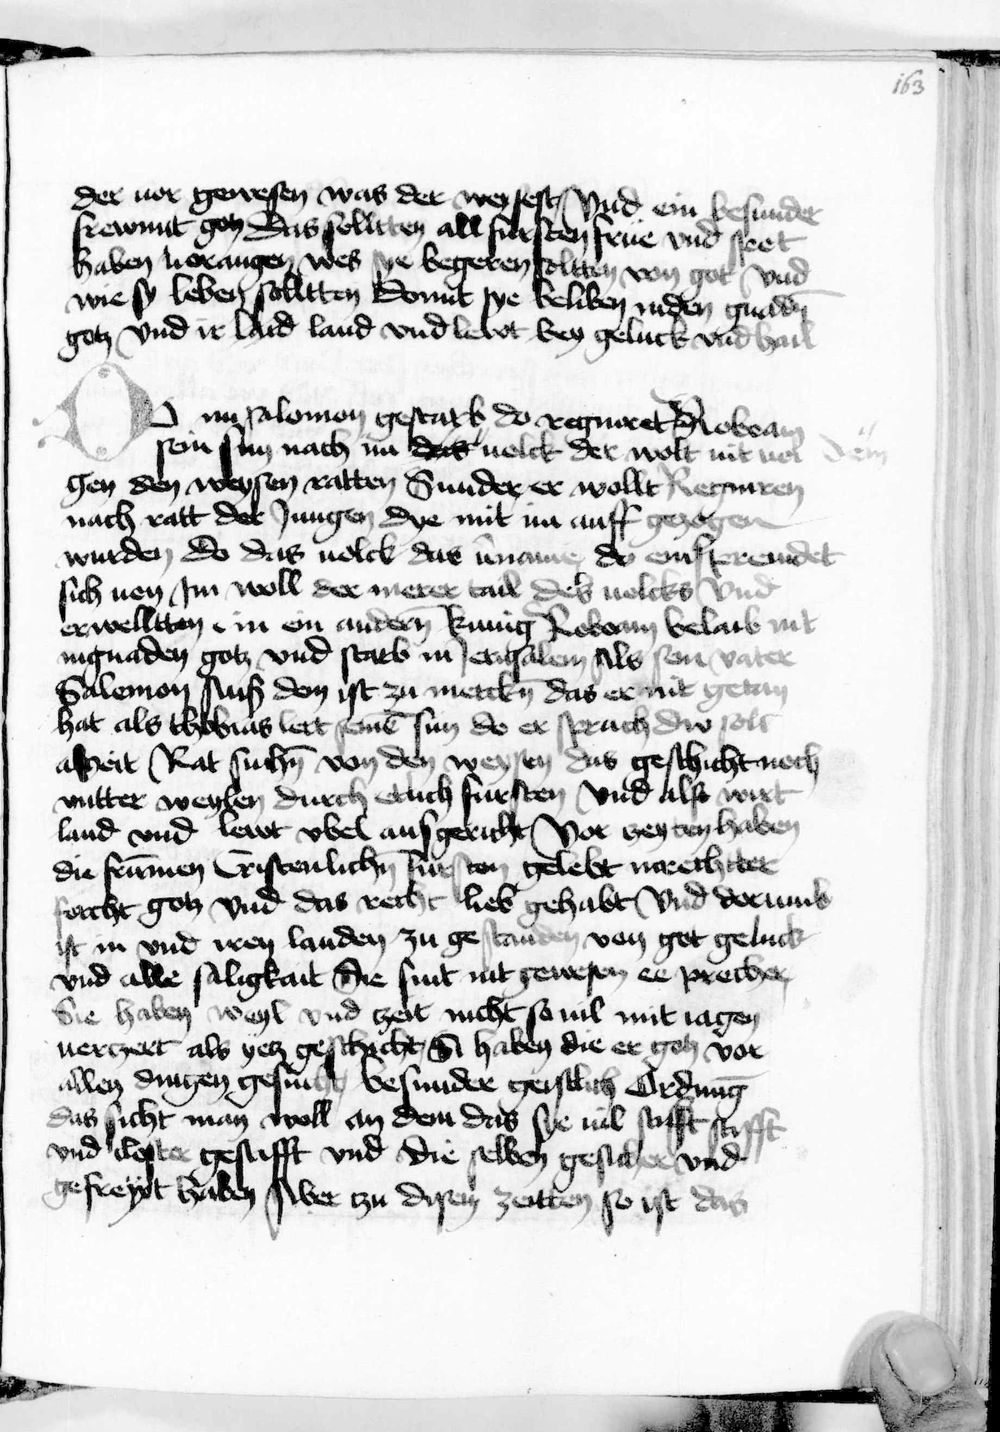 163
der uor gewesen was der weysest Vnd ein besunder
frewnnt gotz Das sollten all fursten frue vnd spot
haben uoraugen wes sye begeren soltten von got Vnd
wie sy leben solltten Domit sye beliben inden gnadñ
gotz Vnd ir laid land vnd lewt bey geluck vnd hail
DO nu salomon gestarb do regnieret Roboam
sein sun nach im das uolck der wolt nit uol Dem
gen den weysen ratten Sunder er wollt Regniren
nach ratt der Jungen dye mit im auff gezogen
wurden Do das uolck das uername do empfremdet
sich uon Jm woll der merer tail des uolcks Vnd
erwelltten in ein andern kunig Roboam belaib nit
ingnaden gotz vnd starb in Jerusalem Als sein vater
Salemon Auß dem ist zu mercken das er nit getan
hat als thobias lert seinē sun do er sprach dw solt
alzeit Rat suchn von den weysen das geschicht noch
vntter weylen durch etlich fursten Vnd also wirt
land vnd lewt vbel ausgericht Vor zeyten haben
die frumen Cristenlichn fursten gelebt inrechtter
forcht gotz Vnd das recht lieb gehabt Vnd dorumb
ist in vnd iren landen zu gestanden von got geluck
vnd alle saligkait Sie sint nit gewesen ee precher
Sie haben weyl vnd zeit nicht so uil mit iagen
uerzert als yetz geschicht Si haben die er gotz vor
allen dingen gesucht besunder geistlich Ordnung
das sicht man woll an dem das sye uil stifft stifft
vnd closter gestifft vnd die selben gestiftet vnd
gefreyot haben Aber tzu disen zeitten so ist das